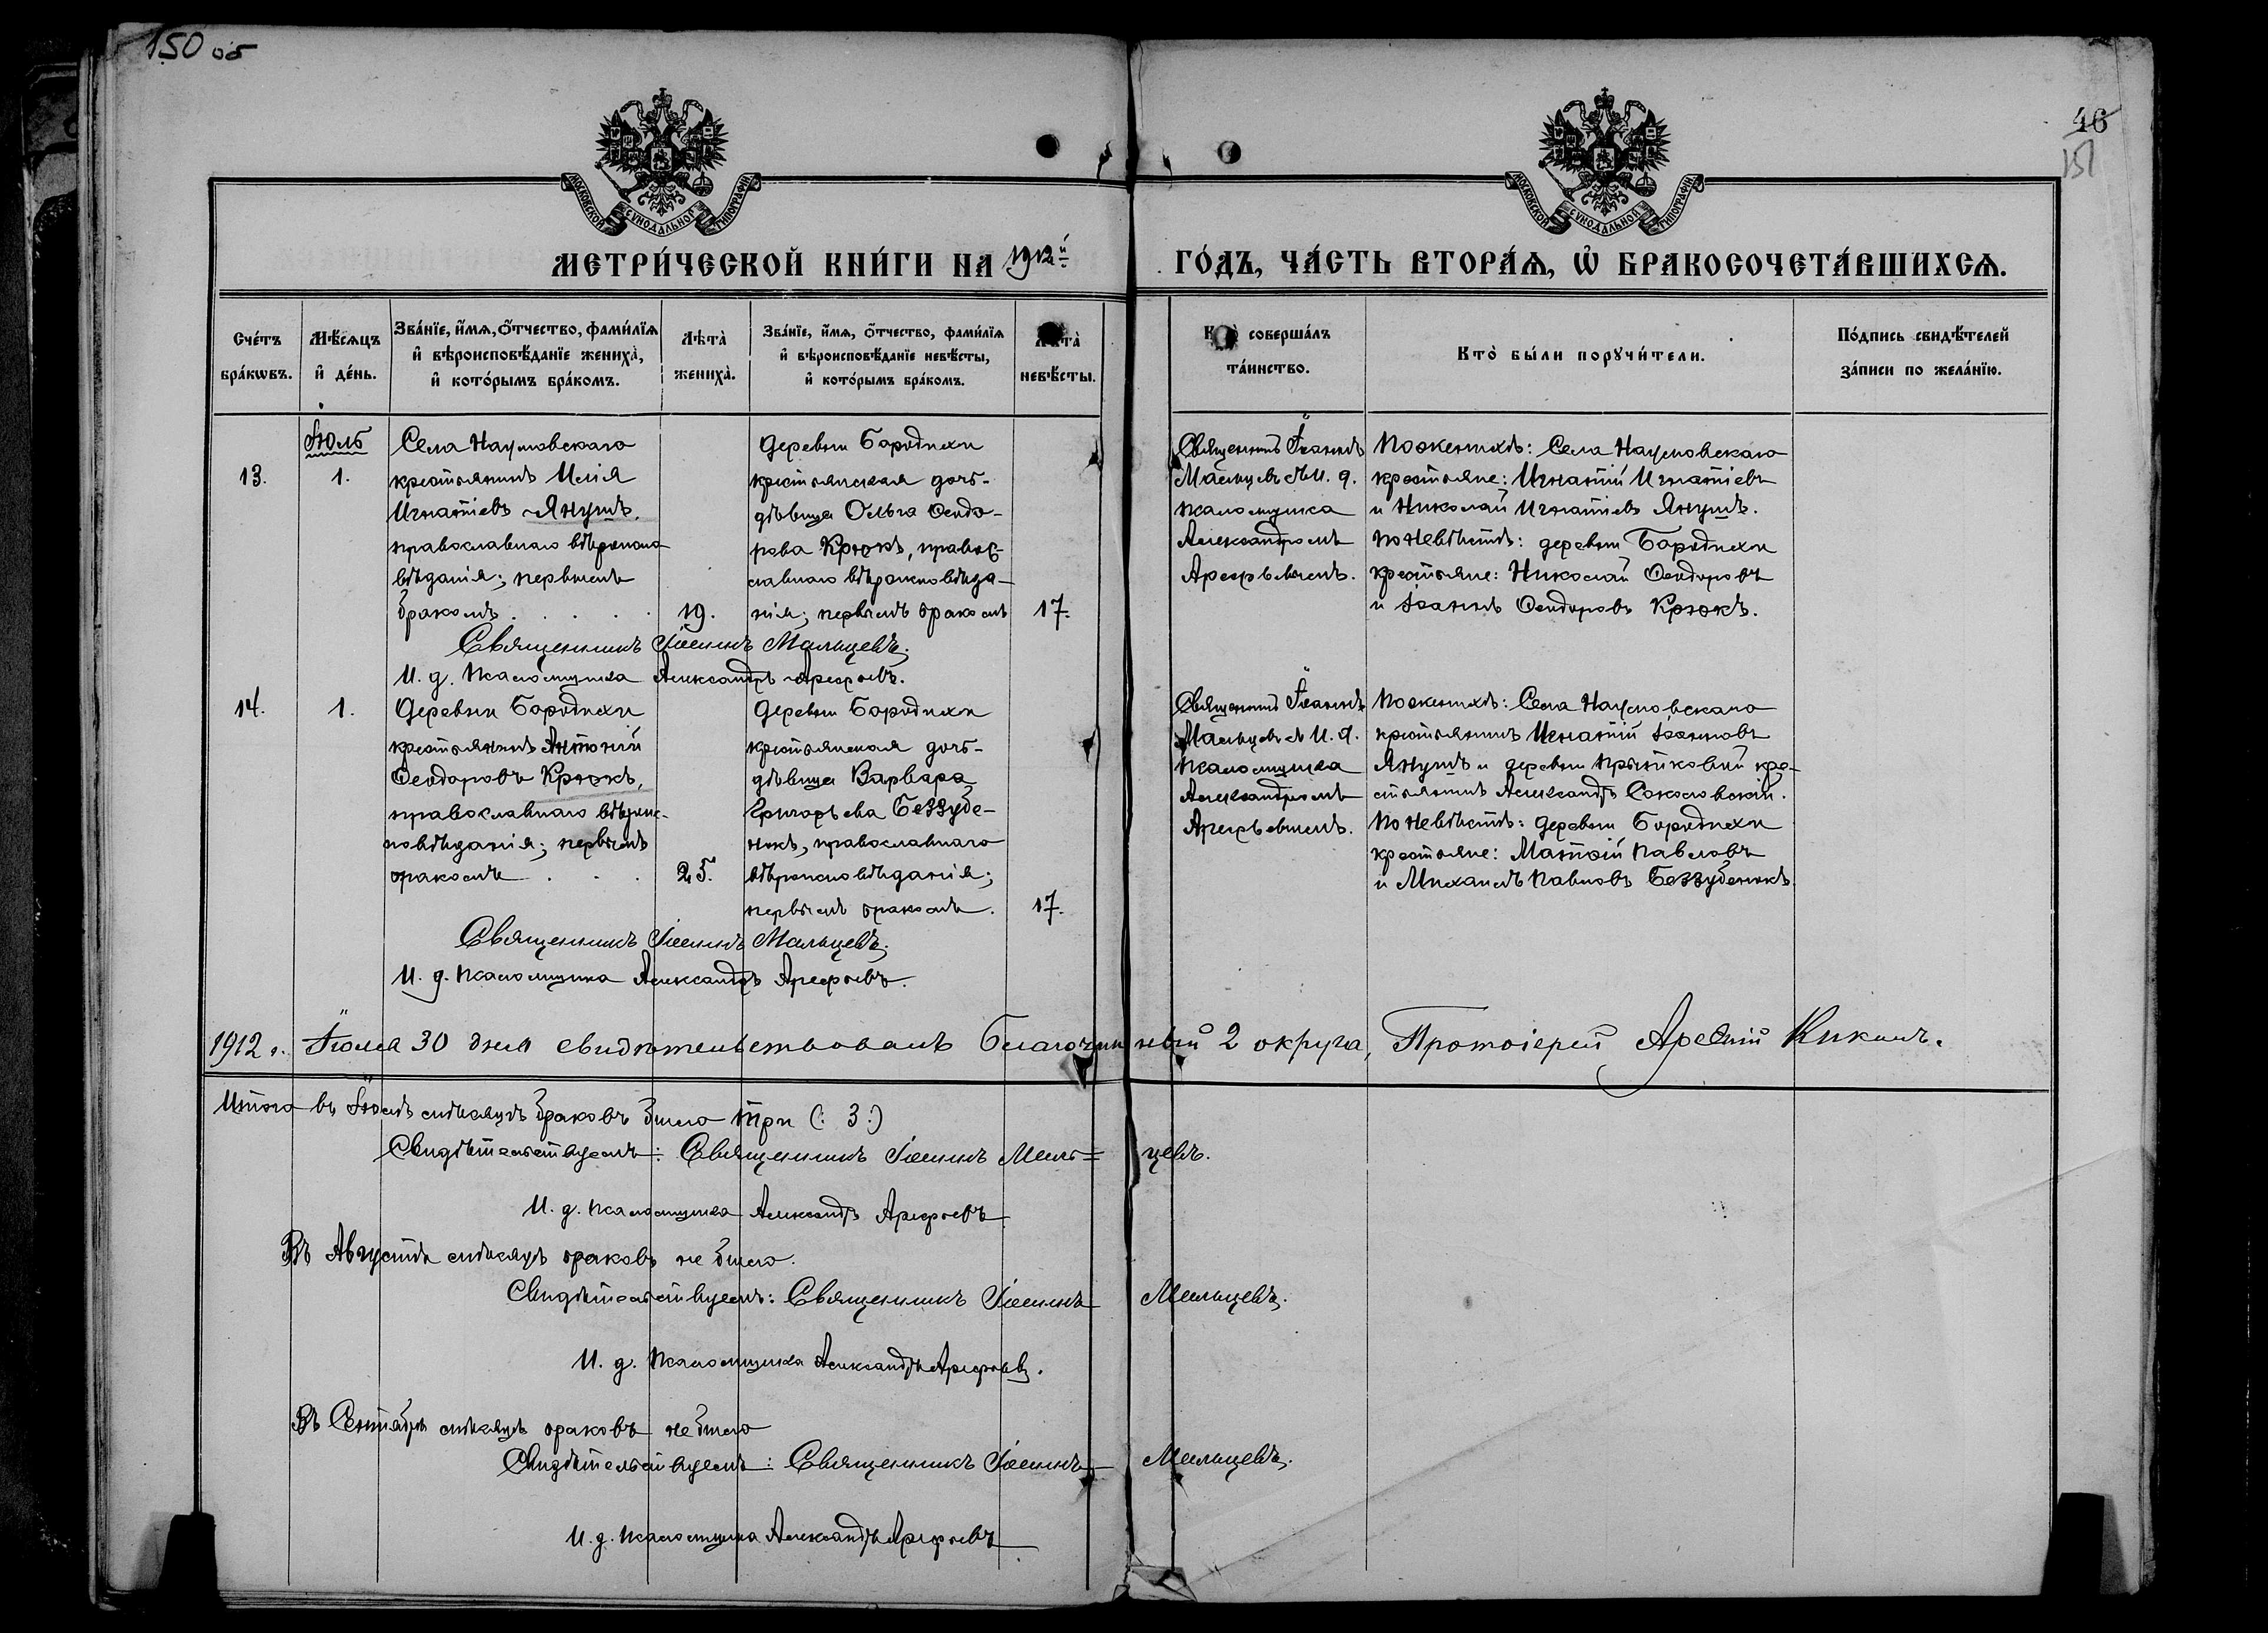 150 об
46
151
МОСКОВСКОЙ СУНОДАЛЬНОЙ ТИПОГРАФІИ
МОСКОВСКОЙ СУНОДАЛЬНОЙ ТИПОГРАФІИ
МЕТРИ́ЧЕСКОЙ КНИ́ГИ НА 1912й
ГО́ДЪ, ЧА́СТЬ ВТОРА́Ѧ, Ѡ҆ БРАКОСОЧЕТА́ВШИХСѦ.
Сче́тъ бра́кѡвъ.
Мѣ́сѧцъ и҆ де́нь.
Зва́нїе, и҆́мѧ, ѻ҆́тчество, фами́лїѧ и҆ вѣроисповѣ́данїе жениха̀, и҆ кото́рымъ бра́комъ.
Лѣта̀ жениха̀.
Зва́нїе, и҆́мѧ, ѻ҆́тчество, фами́лїѧ и҆ вѣроисповѣ́данїе невѣ́сты, и҆ кото́рымъ бра́комъ.
Лѣта̀ невѣ́сты.
Кто̀ соверша́лъ та́инство.
Кто̀ бы́ли порꙋчи́тели.
По́дпись свидѣ́телей за́писи по жела́нїю.
13.
Іюль
1.
Села Наумовскаго
крестьянинъ Илія
Игнатіевъ Янушъ,
православнаго вѣроиспо-
вѣданія; первымъ
бракомъ . . . .
19.
Деревни Бородихи
крестьянская дочь-
дѣвица Ольга Ѳеодо-
рова Крюкъ, правос-
лавнаго вѣроисповѣда-
нія; первымъ бракомъ
17.
Священникъ Іоаннъ
Мальцевъ съ И. д.
псаломщика
Александромъ
Арефьевымъ.
По женихѣ: Села Наумовскаго
крестьяне: Игнатій Игнатіевъ
и Николай Игнатіевъ Янушъ.
По невѣстѣ: деревни Бородихи
крестьяне: Николай Ѳеодоровъ
и Іоаннъ Ѳеодоровъ Крюкъ.
Священникъ Іоаннъ Мальцевъ.
И. д. псаломщика Александръ Арефьевъ.
14.
1.
Деревни Бородихи
крестьянинъ Антоній
Ѳеодоровъ Крюкъ,
православнаго вѣроис-
повѣданія; первымъ
бракомъ . . .
25.
Деревни Бородихи
крестьянская дочь-
дѣвица Варвара
Григорьева Беззубе-
нокъ, православнаго
вѣроисповѣданія;
первымъ бракомъ.
17.
Священникъ Іоаннъ
Мальцевъ съ И. д.
псаломщика
Александромъ
Арефьевымъ.
По женихѣ: Села Наумовскаго
крестьянинъ Игнатій Іоанновъ
Янушъ и деревни кре-
стьянинъ Александръ Соколовскій.
По невѣстѣ: Деревни Бородихи
крестьяне: Матѳій Павловъ
и Михаилъ Павловъ Беззубенокъ.
Священникъ Іоаннъ Мальцевъ.
И. д. псаломщика Александръ Арефьевъ.
1912 г. Іюля 30 дня свидѣтельствовалъ Благочинный 2 округа, Протоіерей Арсеній Кикинъ.
Итого въ Іюлѣ мѣсяцѣ браковъ было три (: 3:)
Свидѣтельствуемъ: Священникъ Іоаннъ Маль=цевъ.
И. д. псаломщика Александръ Арефьевъ
Въ Августѣ мѣсяцѣ браковъ не было.
Свидѣтельствуемъ: Священникъ Іоаннъ Мальцевъ.
И. д. псаломщика Александръ Арефьевъ.
Въ Сентябрѣ мѣсяцѣ браковъ не было
Свидѣтельствуемъ: Священникъ Іоаннъ Мальцевъ.
И. д. псаломщика Александръ Арефьевъ